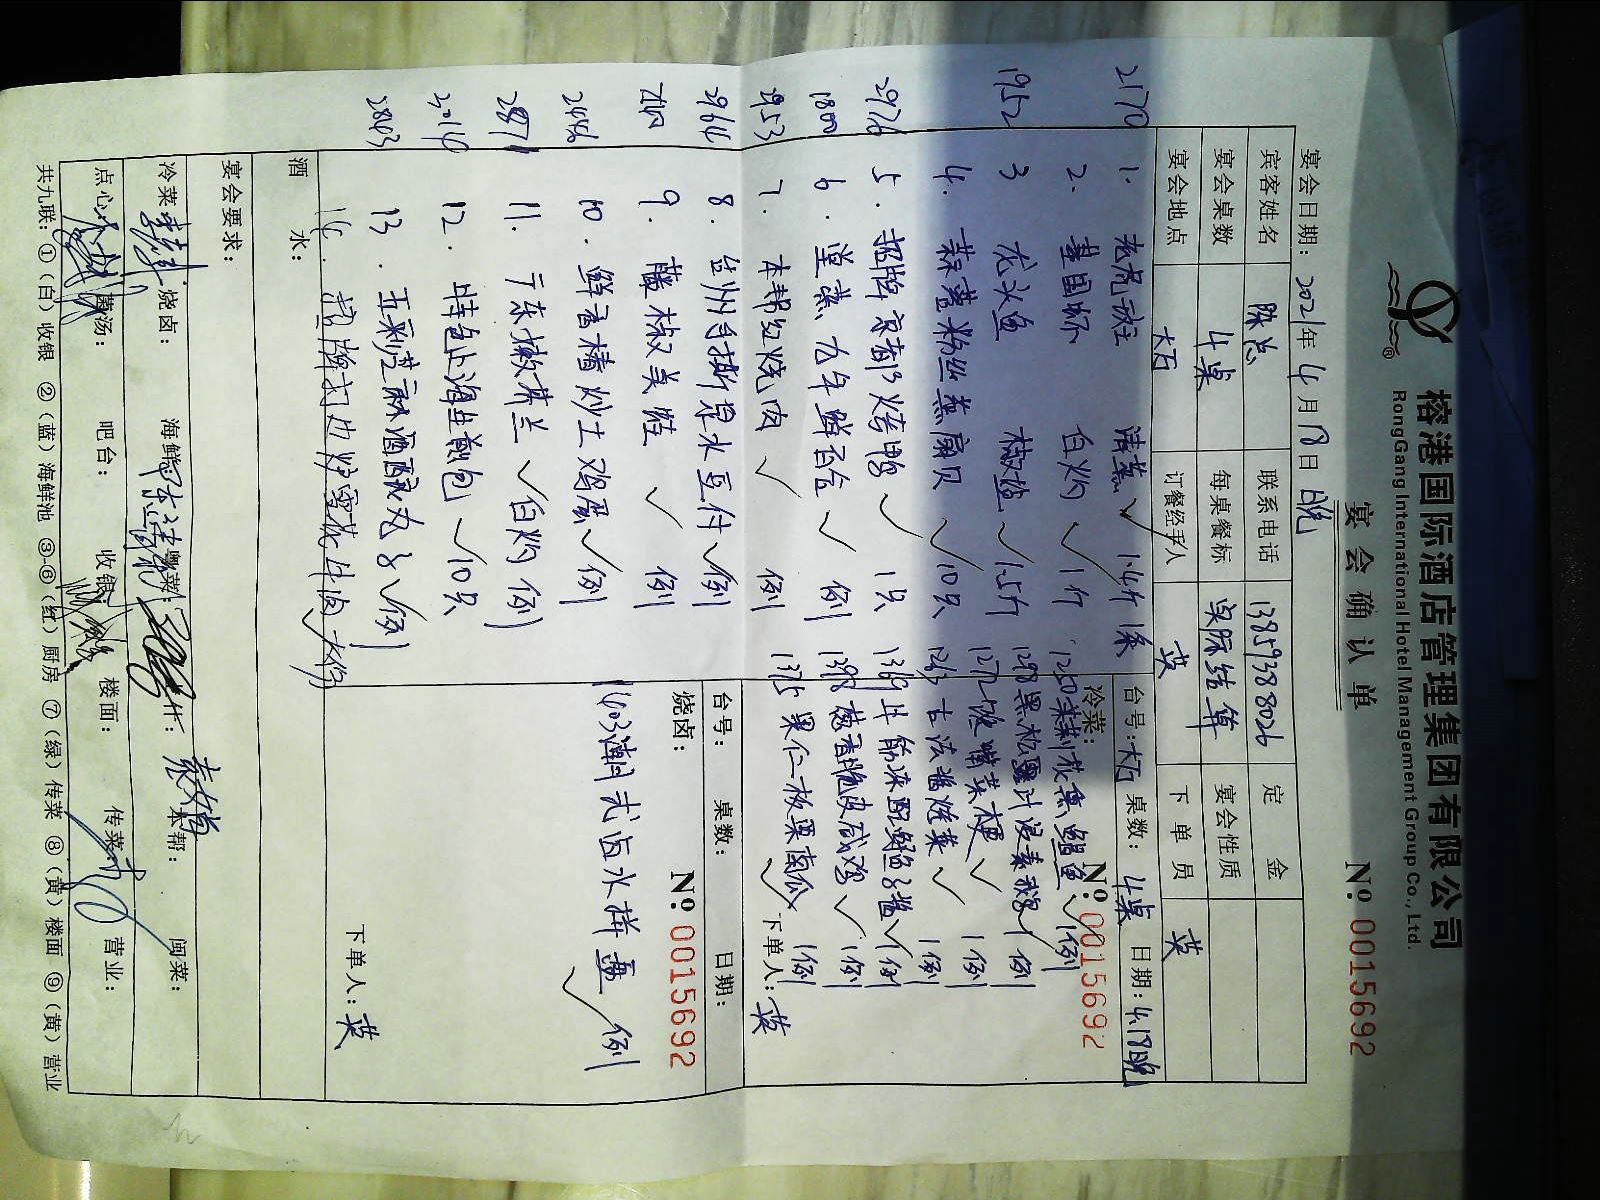 榕港国际酒店管理集团有限公司
RongGang International Hotel Management Group Co., Ltd.
宴会确认单
№ 0015692
宴会日期：2021年4月18日 晚
宾客姓名 陈总 联系电话 13859388026 定金
宴会桌数 4桌 每桌餐标 实际结算 宴会性质
宴会地点 大石 订餐经手人 英 下单员 英
2170 1. 老虎斑 清蒸 ✓ 1.4斤 1条
2. 基围虾 白灼 ✓ 1斤
1952 3 龙头鱼 椒盐 ✓ 1.5斤
4. 蒜蓉粉丝蒸扇贝 ✓ 10只
2976 5. 招牌京都烤鸭 ✓ 1只
1800 6. 堂蒸九年鲜百合 ✓ 例
2953 7. 本帮红烧肉 ✓ 例
2964 8. 台州手撕原水豆付 ✓ 例
9. 藤椒美蛙 ✓ 例
2446 10. 鲜香椿炒土鸡蛋 ✓ 例
2871 11. 广东嫩芥兰 ✓ 白灼 例
12. 特色上海生煎包 ✓ 10只
2843 13. 五彩芝麻酒酿丸子 ✓ 例
14. 招牌雪花牛肉 ✓
台号：大石 桌数：4桌 日期：4.18晚
冷菜：
№ 0015692
1298 黑松露汁浸素鲍 ✓ 1例
✓ 1例
✓ 1例
1369 牛筋冻配鲟鱼子酱 ✓ 1例
1398 葱香脆皮咸鸡 ✓ 1例
1375 果仁板栗南瓜 ✓ 1例
下单人：英
台号： 桌数： 日期：
烧卤：
№ 0015692
1603 潮式卤水拼盘 ✓ 例
下单人：英
酒水：
宴会要求：
冷菜 烧卤： 海鲜 粤菜： 什： 本帮： 闽菜：
点心 羹汤： 吧台： 收银： 楼面： 传菜 营业：
共九联：①（白）收银 ②（蓝）海鲜池 ③-⑥（红）厨房 ⑦（绿）传菜 ⑧（黄）楼面 ⑨（黄）营业